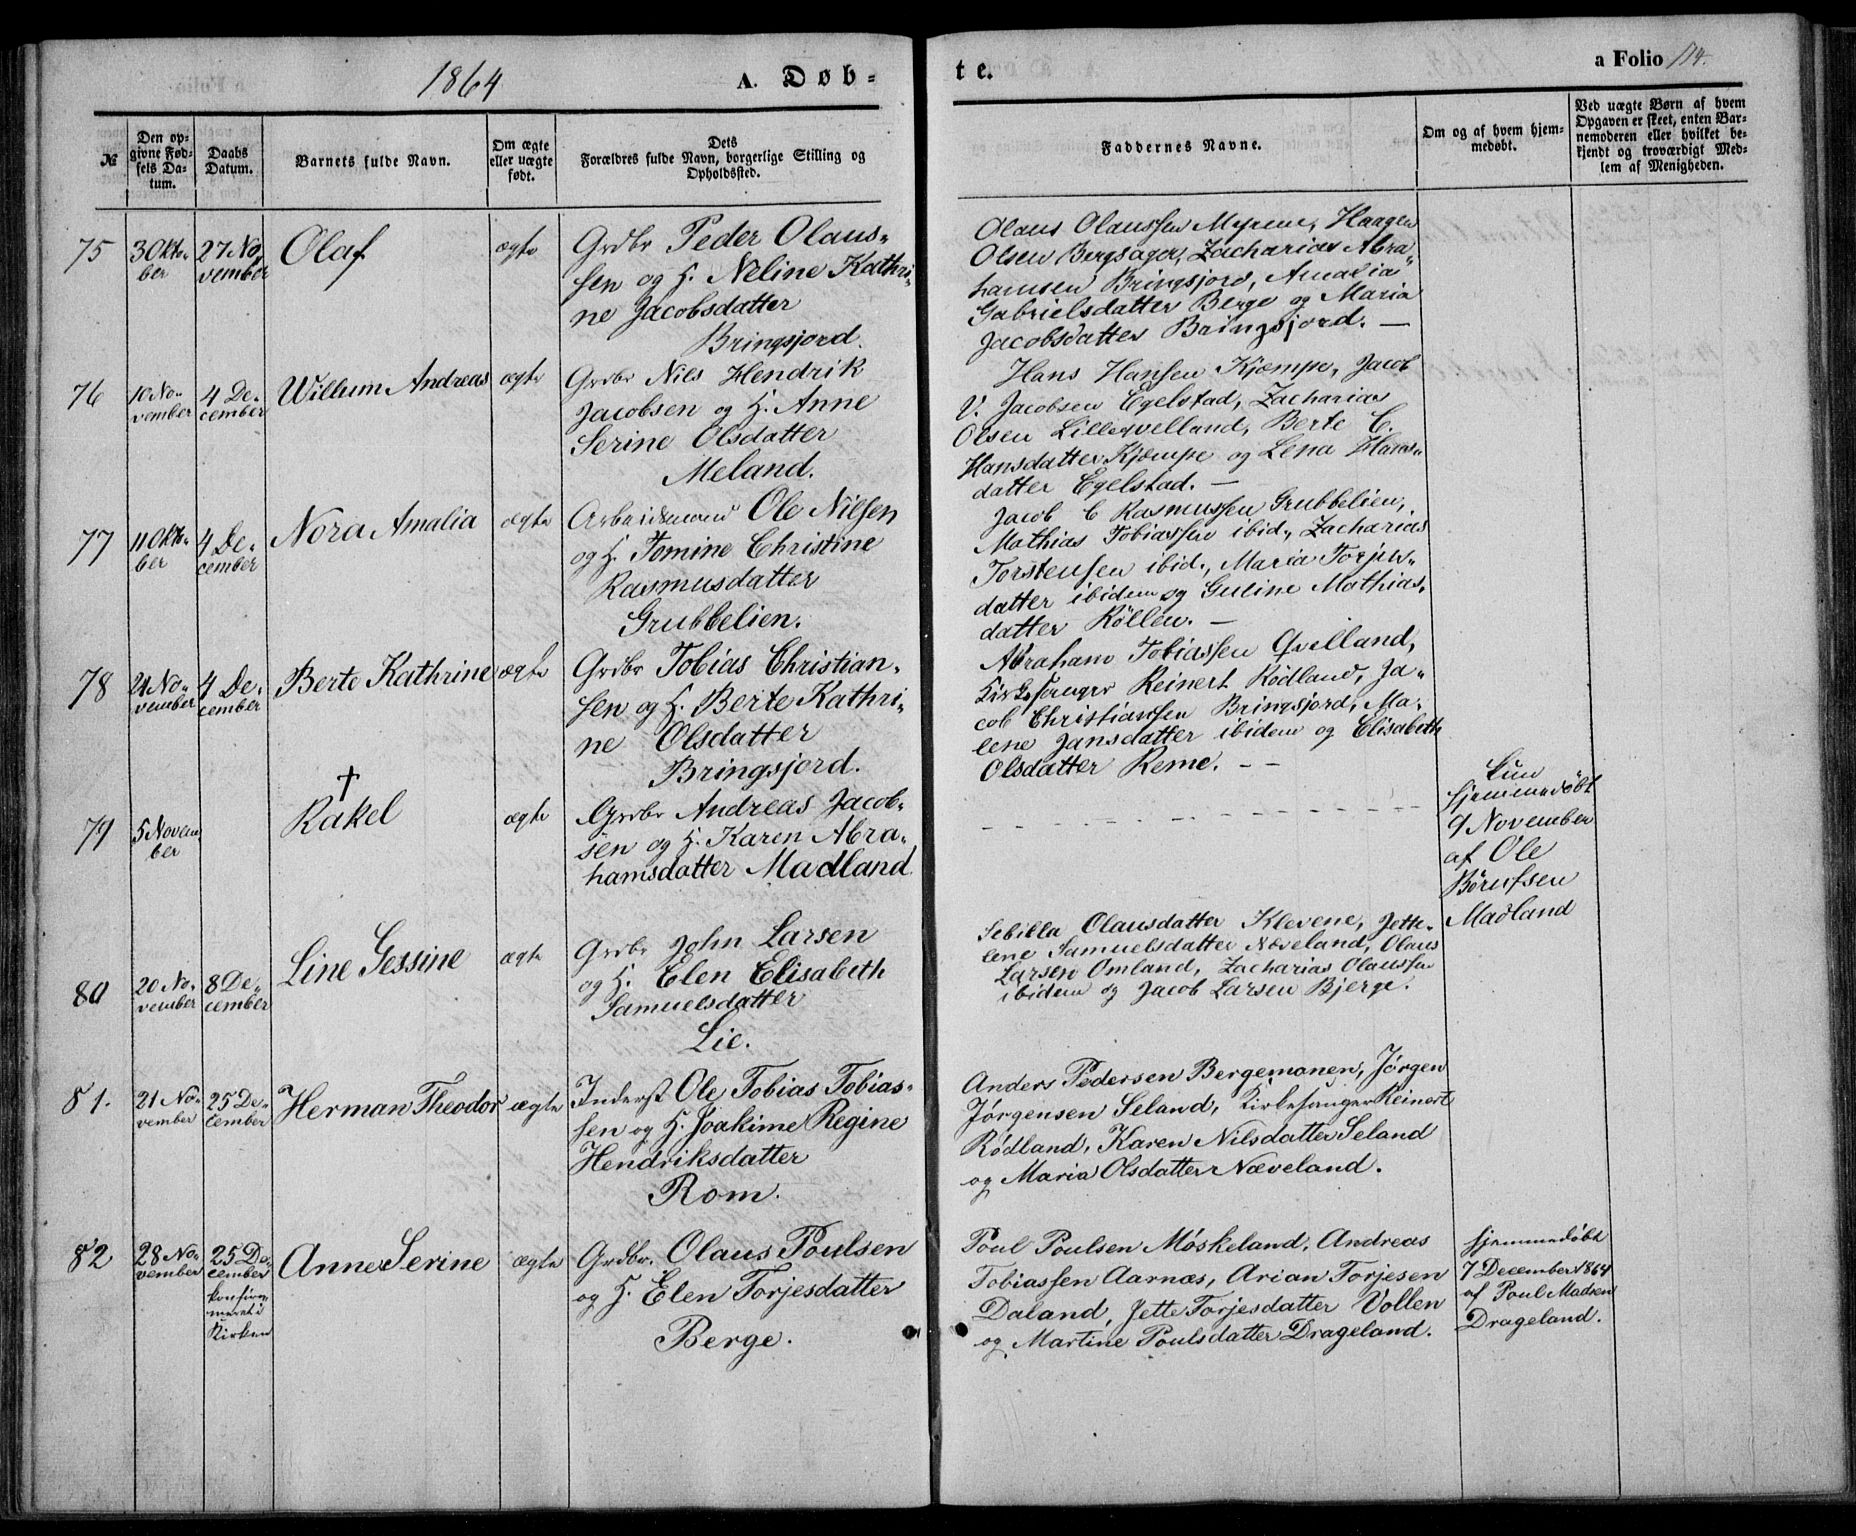 1864
A. Døb-
te.
a Folio 114.
№
Den op-
givne Fød-
sels Da-
tum.
Daabs
Datum.
Barnets fulde Navn.
Om ægte
eller uægte
født.
Dets
Forældres fulde Navn, borgerlige Stilling og
Opholdssted.
Faddernes Navne.
Om og af hvem hjem-
medøbt.
Ved uægte Børn af hvem
Opgaven er skeet, enten Bar-
nemoderen eller hvilket be-
kjendt og troværdigt Med-
lem af Menigheden.
75
3 Okto-
ber
27 No-
vember
Olaf
ægte
Grdbr Peder Olaus-
sen og H. Neline Kathri-
ne Jacobsdatter
Bringsjord.
Olaus Olaussen Myrene, Haagen
Olsen Bergsager, Zacharias Abra-
hamsen Bringsjord, Amalia
Gabrielsdatter Berge og Maria
Jacobsdatter Bringsjord. —
76
10 No-
vember
4 De-
cember
Willum Andreas
ægte
Grdbr Nils Hendrik
Jacobsen og H. Anne
Serine Olsdatter
Meland.
Hans Hansen Kjæmpe, Jacob
V. Jacobsen Egelstad, Zacharias
Olsen Lilleqvelland, Berte C.
Hansdatter Kjæmpe og Lena Hans-
datter Egelstad. —
77
11 Okto-
ber
4 De-
cember
Nora Amalia
ægte
Arbeidsmand Ole Nilsen
og H. Tomine Christine
Rasmusdatter
Grubbelien.
Jacob C Rasmussen Grubbelien,
Mathias Tobiassen ibid., Zacharias
Torstensen ibid., Maria Torjus-
datter ibidem og Guline Mathias-
datter Röllen. —
78
21 No-
vember
4 De-
cember
Berte Kathrine
ægte
Grdbr Tobias Christian-
sen og H. Berte Kathri-
ne Olsdatter
Bringsjord.
Abraham Tobiassen Qvilland,
Kirkesanger Reinert Rödland, Ja-
cob Christianssen Bringsjord, Ma-
lene Jansdatter ibidem og Elisabeth
Olsdatter Reme. — —
79
5 Novem-
ber
†
Rakel
ægte
Grdbr Andreas Jacob-
sen og H. Karen Abra-
hamsdatter Madland.
Kun
hjemmedöbt
9 November
af Ole
Börufsen
Madland
80
20 No-
vember
8 De-
cember
Line Gessine
ægte
Grdbr John Larsen
og H. Elen Elisabeth
Samuelsdatter
Lie.
Sebilla Olausdatter Klevene, Jette-
lene Samuelsdatter Næveland, Olaus
Larsen Omland, Zacharias Olaussen
ibidem og Jacob Larsen Bjerge.
81.
21 No-
vember
25 De-
cember
Herman Theodor
ægte
Inderst Ole Tobias Tobias-
sen og H. Joakime Regine
Hendriksdatter
Rom.
Anders Pedersen Bergemonen, Jørgen
Jørgensen Seland, Kirkesanger Reinert
Rødland, Karen Nilsdatter Seland
og Maria Olsdatter Næveland.
82
28 No-
vember
25 De-
cember
konfir-
meret i
Kirken
Anne Serine
ægte
Grdbr. Olaus Poulsen
og H. Elen Torjesdatter
Berge.
Poul Poulsen Møskeland, Andreas
Tobiassen Aarnæs, Arian Torjesen
Daland, Jette Torjesdatter Vollen
og Martine Poulsdatter Drageland.
hjemmedøbt
7 December 1864
af Poul Madsen
Drageland.